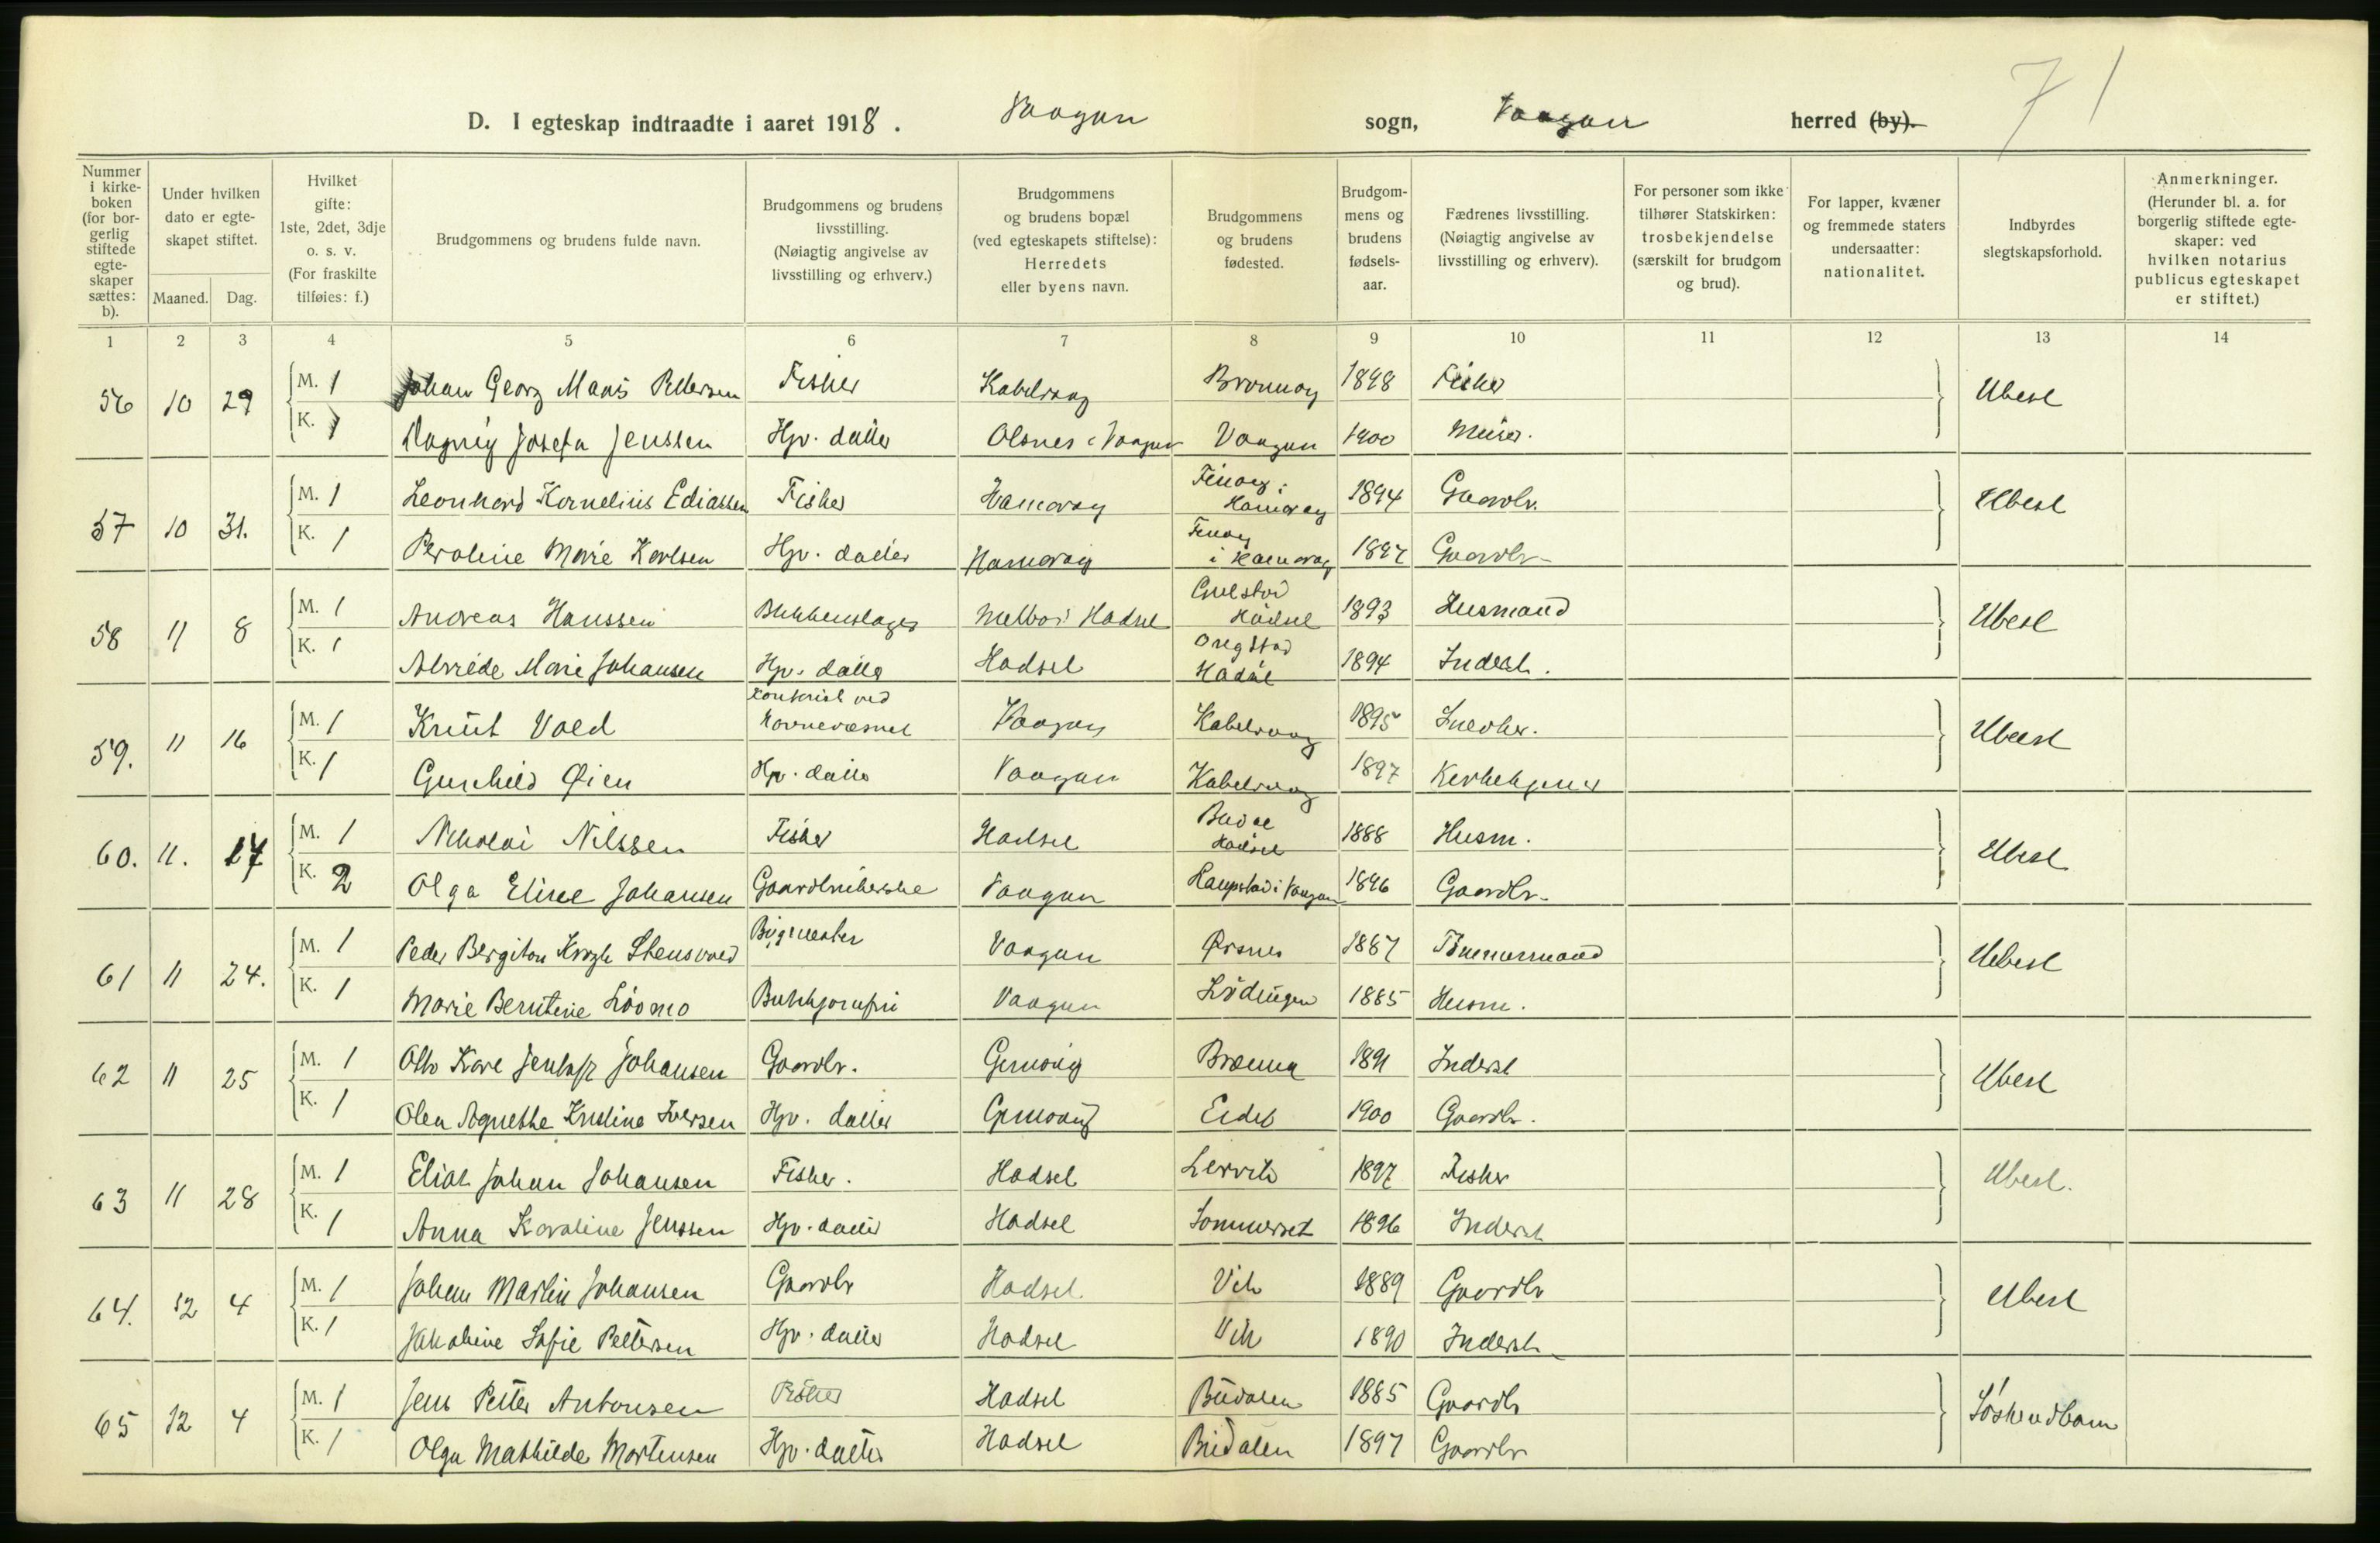 71
D. I egteskap indtraadte i aaret 1918. Vaagan sogn, Vaagan herred (by).
Nummer i kirkeboken (for borgerlig stiftede egteskaper sættes: b).
Under hvilken dato er egteskapet stiftet.
Maaned. Dag.
Hvilket gifte: 1ste, 2det, 3dje o. s. v. (For fraskilte tilføies: f.)
Brudgommens og brudens fulde navn.
Brudgommens og brudens livsstilling. (Nøiagtig angivelse av livsstilling og erhverv.)
Brudgommens og brudens bopæl (ved egteskapets stiftelse): Herredets eller byens navn.
Brudgommens og brudens fødested.
Brudgommens og brudens fødselsaar.
Fædrenes livsstilling. (Nøiagtig angivelse av livsstilling og erhverv).
For personer som ikke tilhører Statskirken: trosbekjendelse (særskilt for brudgom og brud).
For lapper, kvæner og fremmede staters undersaatter: nationalitet.
Indbyrdes slegtskapsforhold.
Anmerkninger. (Herunder bl. a. for borgerlig stiftede egteskaper: ved hvilken notarius publicus egteskapet er stiftet.)
1 2 3 4 5 6 7 8 9 10 11 12 13 14
56 10 29 M. 1 Johan Georg Maas Pettersen Fisker Kabelvaag Brønnøy 1898 Fisker Ubesl
K. 1 Dagny Josefa Jenssen Hjv. datter Olsnes i Vaagan Vaagan 1900 Murer.
57 10 31. M. 1 Leonhard Kornelius Ediassen Fisker Hamarøy Finøy i Hamarøy 1894 Gaardbr. Ubesl
K. 1 Peroline Marie Karlsen Hjv. datter Hamarøy Finøy i Hamarøy 1897 Gaardbr
58 11 8 M. 1 Andreas Hanssen Blikkenslager Melbo i Hadsel Gulstad Hadsel 1893 Husmand Ubesl
K. 1 Alvilde Marie Johansen Hjv. datter Hadsel Ongstad Hadsel 1894 Inderst.
59. 11 16 M. 1 Knut Vold Kontorist ved Havnevæsnet Vaagan Kabelvaag 1895 Snedker. Ubesl
K. 1 Gunhild Øien Hjv. datter Vaagan Kabelvaag 1897 Kirketjener
60. 11. 17 M. 1 Nikolai Nilssen Fisker Hadsel Budal Hadsel 1888 Husm. Ubesl
K. 2 Olga Elise Johansen Gaardbrukerske Vaagan Haupstad i Vaagan 1896 Gaardbr.
61 11 24. M. 1 Peder Bergiton Krogh Stensvold Bygmester Vaagan Ørsnes 1887 Tømmermand Ubesl
K. 1 Marie Berntine Løvmo Butikjomfru Vaagan Lødingen 1885 Husm.
62 11 25 M. 1 Otto Kare Jentoft Johansen Gaardbr. Gimsøy Brenna 1891 Inderst Ubesl
K. 1 Olea Agnethe Kristine Iversen Hjv. datter Gimsøy Eidet 1900 Gaardbr.
63 11 28 M. 1 Elias Johan Johansen Fisker. Hadsel Lervik 1897 Fisker Ubesl.
K. 1 Anna Karoline Jenssen Hjv. datter Hadsel Sommerset 1896 Inderst
64. 12 4 M. 1 Johan Martin Johansen Gaardbr Hadsel Vik 1889 Gaardbr Ubesl
K. 1 Jakobine Sofie Pettersen Hjv. datter Hadsel Vik 1890 Inderst
65 12 4 M. 1 Jens Petter Antonsen Fisker Hadsel Budalen 1885 Gaardbr Søskendbarn
K. 1 Olga Mathilde Mortensen Hjv. datter Hadsel Budalen 1897 Gaardbr